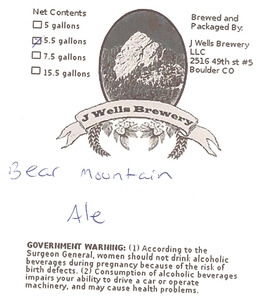 Net Contents
5 gallons
5.5 gallons
7.5 gallons
15.5 gallons
Brewed and
Packaged By:
J Wells Brewery
LLC
2516 49th st #5
Boulder CO
J Wells Brewery
Bear Mountain
Ale
GOVERNMENT WARNING: (1) According to the
Surgeon General, women should not drink alcoholic
beverages during pregnancy because of the risk of
birth defects. (2) Consumption of alcoholic beverages
impairs your ability to drive a car or operate
machinery, and may cause health problems.